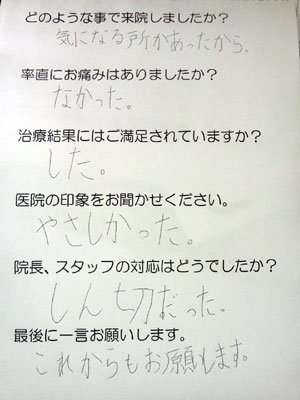 どのような事で来院しましたか？
気になる所があったから。
率直にお痛みはありましたか？
なかった。
治療結果にはご満足されていますか？
した。
医院の印象をお聞かせください。
やさしかった。
院長、スタッフの対応はどうでしたか？
しん切だった。
最後に一言お願いします。
これからもお願します。